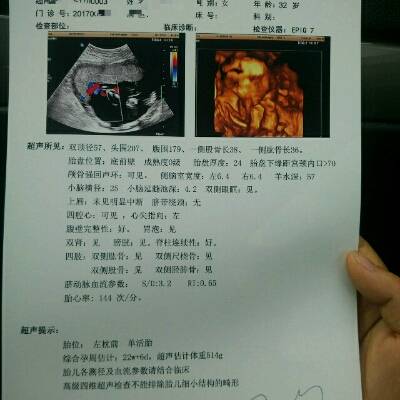 门诊号: 20170 性别: 女 年龄: 32 岁
床号: 科别:
检查部位: 临床诊断: 检查仪器: EPIQ 7
超声所见: 双顶径57、头围207、腹围179、一侧股骨长38、一侧肱骨长36。
胎盘位置: 底前壁 成熟度0级 胎盘厚度: 24 胎盘下缘距宫颈内口>70
颅骨强回声环: 可见。 侧脑室宽度: 左6.4 右6.4 羊水深: 57
小脑横径: 25 小脑延髓池深: 4.2 双侧眼眶: 见。
上唇: 未见明显中断 脐带绕颈: 无
四腔心: 可见 , 心尖指向: 左
腹壁完整性: 好。 胃泡: 见
双肾: 见 膀胱: 见。脊柱连续性: 好。
四肢: 双侧肱骨: 见 双侧尺桡骨: 见
双侧股骨: 见 双侧胫腓骨: 见
脐动脉血流参数: S/D:3.2 RI:0.65
胎心率: 144 次/分。
超声提示:
胎位: 左枕前 单活胎
综合孕周估计: 22w+6d, 超声估计体重514g
胎儿各测径及血流参数请结合临床
高级四维超声检查不能排除胎儿细小结构的畸形